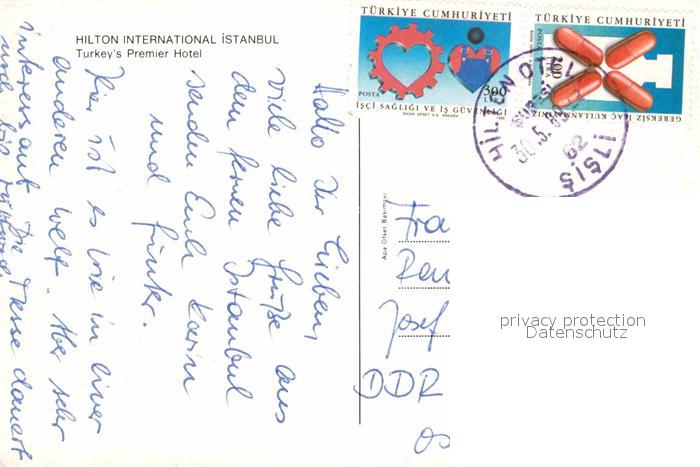 HILTON INTERNATIONAL İSTANBUL
Turkey's Premier Hotel
Hallo Ihr Lieben,
viele liebe Grüße aus
dem fernen Istanbul
senden Euch Karin
und Günter.
Hier ist es wie in einer
anderen Welt. Aber sehr
interessant. Die Messe dauert
und bis
Apa Ofset Basımevi
TÜRKİYE CUMHURİYETİ
POSTA
300
LİRA
İŞÇİ SAĞLIĞI VE İŞ GÜVENLİĞİ
TÜRKİYE CUMHURİYETİ
POSTA
300
LİRA
GEREKSİZ İLAÇ KULLANMAYINIZ
HİLTON OTELİ
30.5.
ŞİŞLİ
Fra
Ren
Josef
DDR
privacy protection
Datenschutz